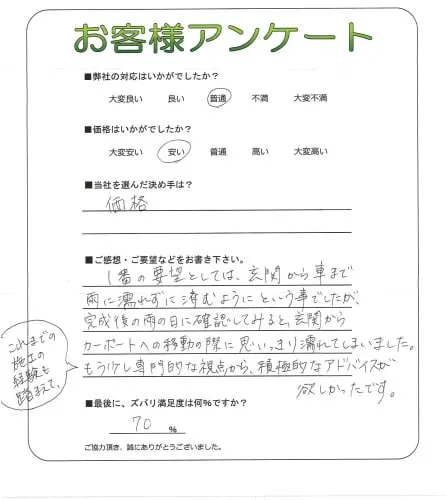 お客様アンケート
■弊社の対応はいかがでしたか?
大変良い 良い 普通 不満 大変不満
■価格はいかがでしたか?
大変安い 安い 普通 高い 大変高い
■当社を選んだ決め手は?
価格
■ご感想・ご要望などをお書き下さい。
1番の要望としては、玄関から車まで
雨に濡れずに済むようにという事でしたが、
完成後の雨の日に確認してみると、玄関から
カーポートへの移動の際に思いっきり濡れてしまいました。
もう少し専門的な視点から、積極的なアドバイスが
欲しかったです。
これまでの
施工の
経験も
踏まえて、
■最後に、ズバリ満足度は何%ですか?
70 %
ご協力頂き、誠にありがとうございました。